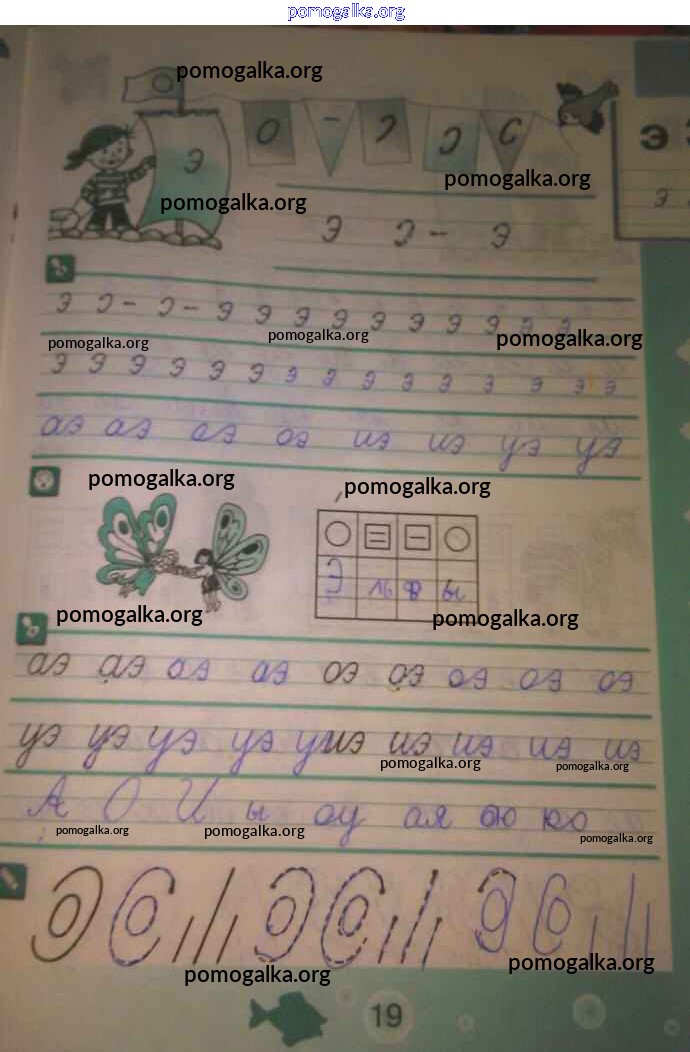 pomogalka.org
pomogalka.org
О - Э Э С
Э
э
pomogalka.org
pomogalka.org
э
э э - э
э э - э - э э э э э э э э э э
pomogalka.org
pomogalka.org
pomogalka.org
э э э э э э э э э э э э э э э
аэ аэ оэ оэ иэ иэ уэ уэ
pomogalka.org
pomogalka.org
Э ль ф ы
pomogalka.org
pomogalka.org
аэ аэ аэ аэ оэ оэ оэ оэ оэ
уэ уэ уэ уэ уиэ иэ иэ иэ иэ
pomogalka.org
pomogalka.org
А О И ы оу ая ою ю
pomogalka.org
pomogalka.org
pomogalka.org
pomogalka.org
pomogalka.org
19